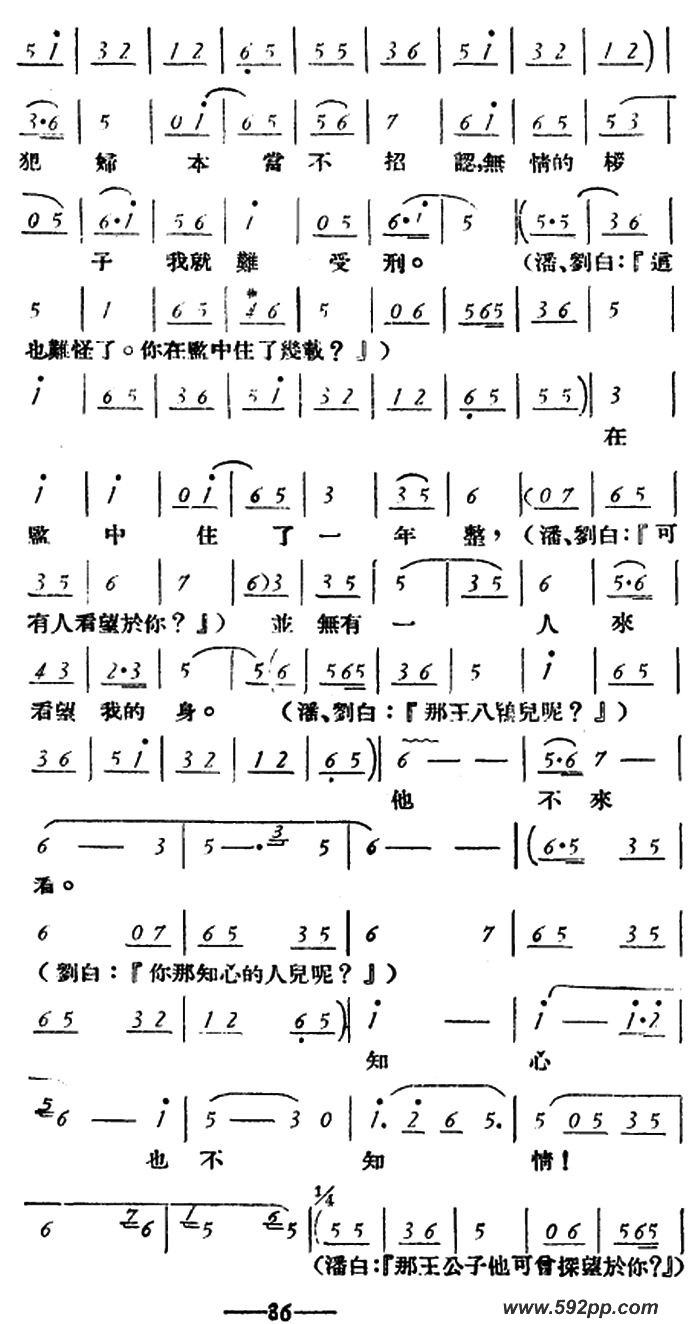 5 i | 3 2 | 1 2 | 6 5 | 5 5 | 3 6 | 5 i | 3 2 | 1 2 ) |
3·6 | 5 | 0 i | 6 5 | 5 6 | 7 | 6 i | 6 5 | 5 3 |
犯 婦 本 當 不 招 認,無 情的 桚
0 5 | 6·i | 5 6 | i | 0 5 | 6·i | 5 | ( 5·5 | 3 6 |
子 我就 難 受 刑。 (潘、劉白:『這
5 | 1 | 6 5 | #4 6 | 5 | 0 6 | 5 6 5 | 3 6 | 5 |
也難怪了。你在監中住了幾載?』)
i | 6 5 | 3 6 | 5 i | 3 2 | 1 2 | 6 5 | 5 5 ) | 3
在
i | i | 0 i | 6 5 | 3 | 3 5 | 6 | ( 0 7 | 6 5 |
監 中 住 了 一 年 整, (潘、劉白:『可
3 5 | 6 | 7 | 6 ) 3 | 3 5 | 5 | 3 5 | 6 | 5·6 |
有人看望於你?』) 並 無有 一 人 來
4 3 | 2·3 | 5 | 5 ( 6 | 5 6 5 | 3 6 | 5 | i | 6 5 |
看望 我的 身。 (潘、劉白:『那王八鴇兒呢?』)
3 6 | 5 i | 3 2 | 1 2 | 6 5 ) | 6 — — | 5·6 7 — |
他 不 來
6 — 3 | 5 — · 3 5 | 6 — — — | ( 6·5 3 5 |
看。
6 0 7 | 6 5 3 5 | 6 7 | 6 5 3 5 |
(劉白:『你那知心的人兒呢?』)
6 5 3 2 | 1 2 6 5 ) | i — | i — i·2 |
知 心
5 6 — i | 5 — 3 0 | i. 2 6 5. | 5 0 5 3 5 |
也 不 知 情!
6 7 6 | 1 5 6 5 | 1/4 ( 5 5 | 3 6 | 5 | 0 6 | 5 6 5 |
(潘白:『那王公子他可曾探望於你?』)
—86—
www.592pp.com